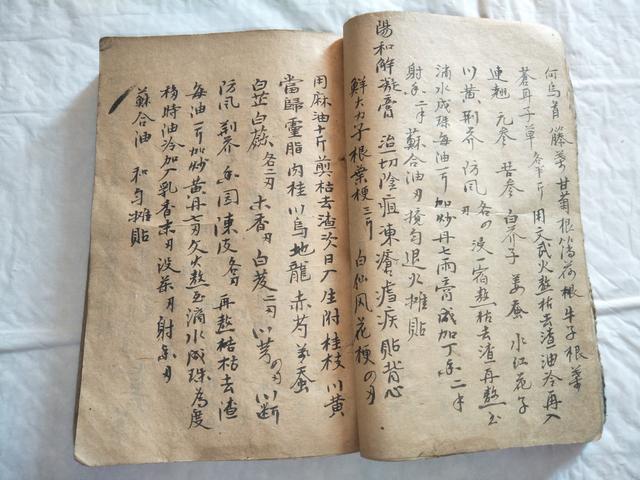 何烏首藤葉甘菊根薄荷根牛子根葉
蒼耳子草各半斤用文武火熬枯去渣油冷再入
連翹元參苦參白芥子姜蚕水紅花子
川黄荆芥防風各の浸一宿熬枯去渣再熬至
滴水成珠每油一斤加炒丹七両膏成加丁香二㐧
射香二㐧蘇合油刃攪匀退火攤貼
陽和解凝膏治一切陰疽凍瘡瘧疾貼背心
鮮大力子根葉梗三斤白仙風花梗の刃
用麻油十斤煎枯去渣次日入生附桂枝川黄
當歸靈脂肉桂川烏地龍赤芍姜蚕
白芷白蔹各二刃木香刃白芨二刃川芎の刃川断
防風荆芥香园陳皮各刃再熬枯枯去渣
每油一斤加炒黄丹七刃文火熬至滴水成珠為度
移時油冷加入乳香末刃没茶刃射香刃
蘇合油和匀攤貼